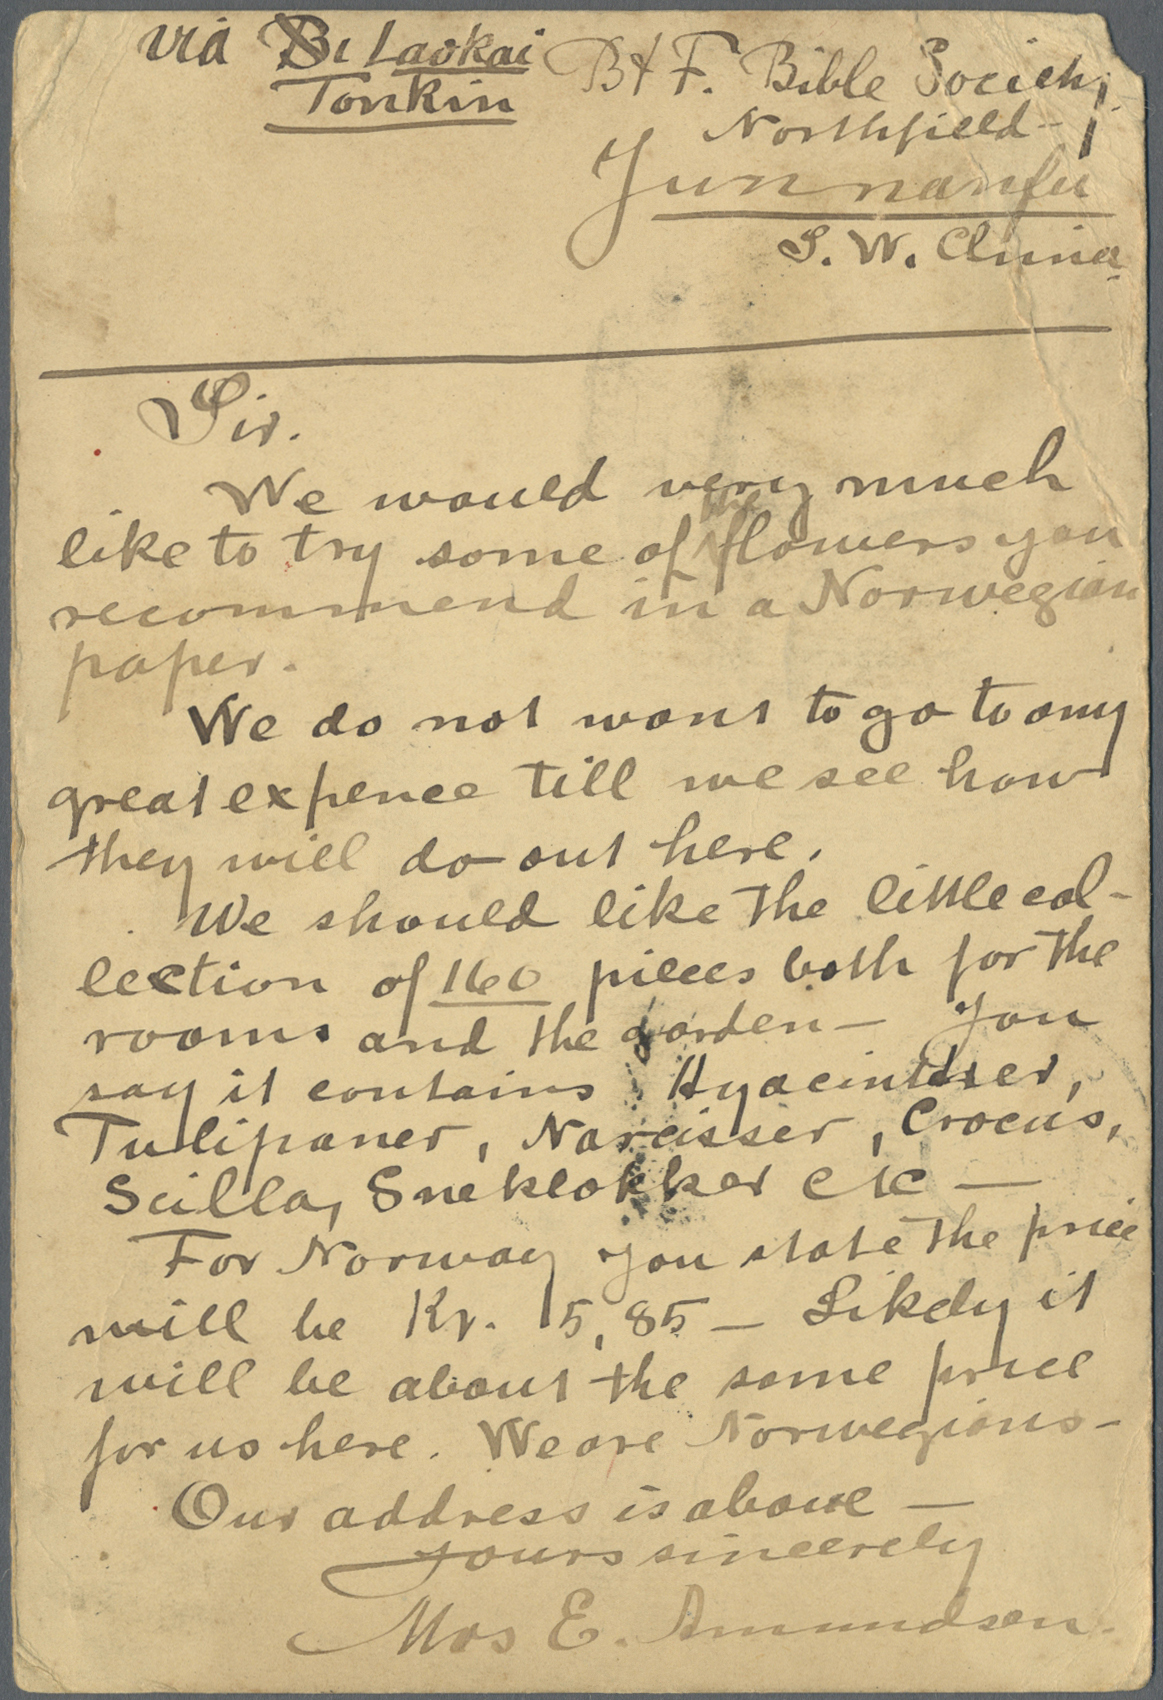 via Laokai
Tonkin
B & F. Bible Society,
Northfield -
Yunnanfu
S. W. China
Sir.
We would very much
like to try some of the flowers you
recommend in a Norwegian
paper.
We do not want to go to any
great expence till we see how
they will do out here.
We should like the little col-
lection of 160 pieces both for the
rooms and the garden - You
say it contains Hyacinther,
Tulipaner, Narcisser, Crocus,
Scilla, Sneklokker etc —
For Norway you state the price
will be Kr. 5,85 - Likely it
will be about the same price
for us here. We are Norwegians -
Our address is above —
Yours sincerely
Mrs E. Amundsen.